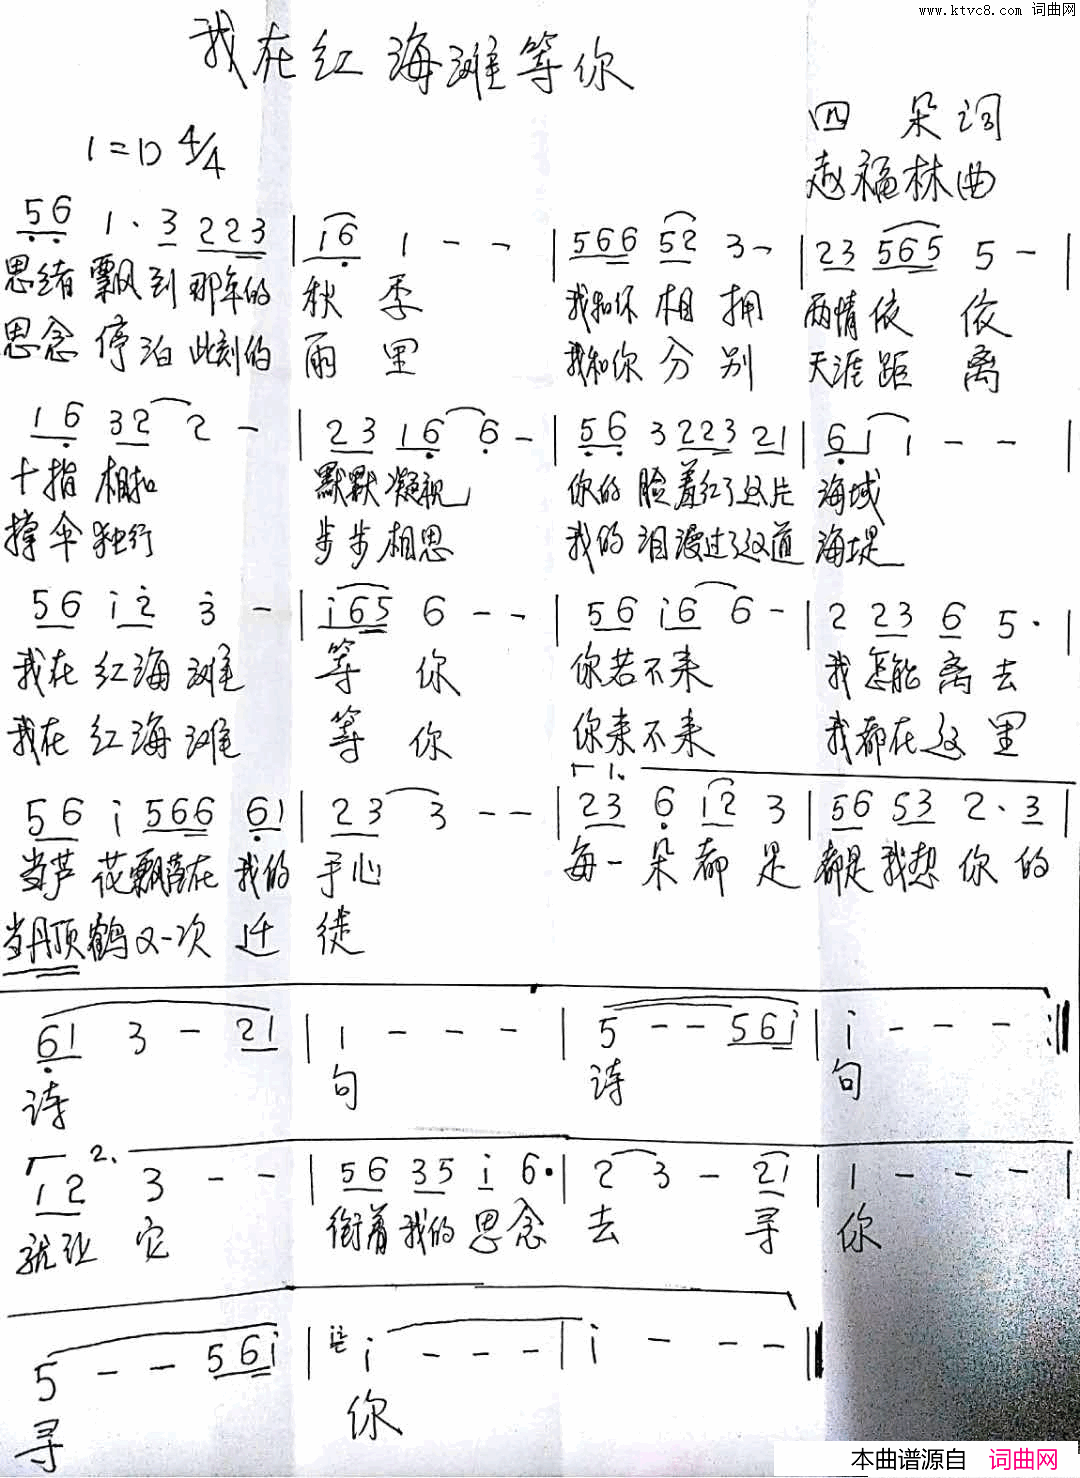 www.ktvc8.com 词曲网
我在红海滩等你
四 朵词
1=D 4/4
赵福林曲
56 1· 3 223 | i6 1 - - | 566 52 3- | 23 565 5 - |
思绪 飘到 那年的 秋 季 我和你 相 拥 两情依 依
思念 停泊 此刻的 雨 里 我和你 分 别 天涯距 离
16 32 2 - | 23 16 6 - | 56 3 223 21 | 61 1 - - |
十指 相扣 默默凝视 你的 脸羞红了这片 海域
撑伞 独行 步步相思 我的 泪漫过了这道 海堤
56 i2 3 - | i65 6 - - | 56 i6 6 - | 2 23 6 5· |
我在 红海 滩 等 你 你若不来 我怎能离去
我在 红海 滩 等 你 你来不来 我都在这里
1.
56 i 566 61 | 23 3 - - | 23 6 i2 3 | 56 53 2· 3 |
当芦 花飘落在 我的 手心 每一 朵都 是 都是我想 你 的
当丹顶鹤又一次 迁 徙
61 3 - 21 | 1 - - - | 5 - - 56i | i - - - :||
诗 句 诗 句
2.
12 3 - - | 56 35 i 6· | 2 3 - 21 | 1 - - - |
就让 它 衔着我的思念 去 寻 你
5 - - 56i | i - - - | i - - - ||
寻 你
本曲谱源自 词曲网